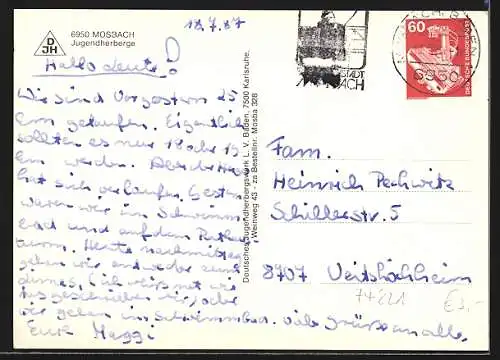 DJH
6950 MOSBACH
Jugendherberge
18.7.87
Hallo Leute!
Wir sind Vorgestern 25
km gelaufen. Eigentlich
sollten es nur 18 oder 19
km werden. Aber der
hat sich verlaufen. Gestern
waren wir im Schwimm
bad und auf dem Rathaus
turm. Heute nachmittag
gehen wir entweder zum
(ich weiß net wie
ausgeschrieben wir), oder
wir gehen ins Schwimmbad. viele grüße an alle,
Eure Maggi
Deutsches Jugendherbergswerk L. V. Baden, 7500 Karlsruhe,
Weinweg 43 - zu Bestellnr. Mosba 328
STADT
MOSBACH
6950
60
DEUTSCHE BUNDESPOST
Fam.
Heinrich Pechwitz
Schillerstr. 5
8707 Veitshöchheim
74821
€3,-